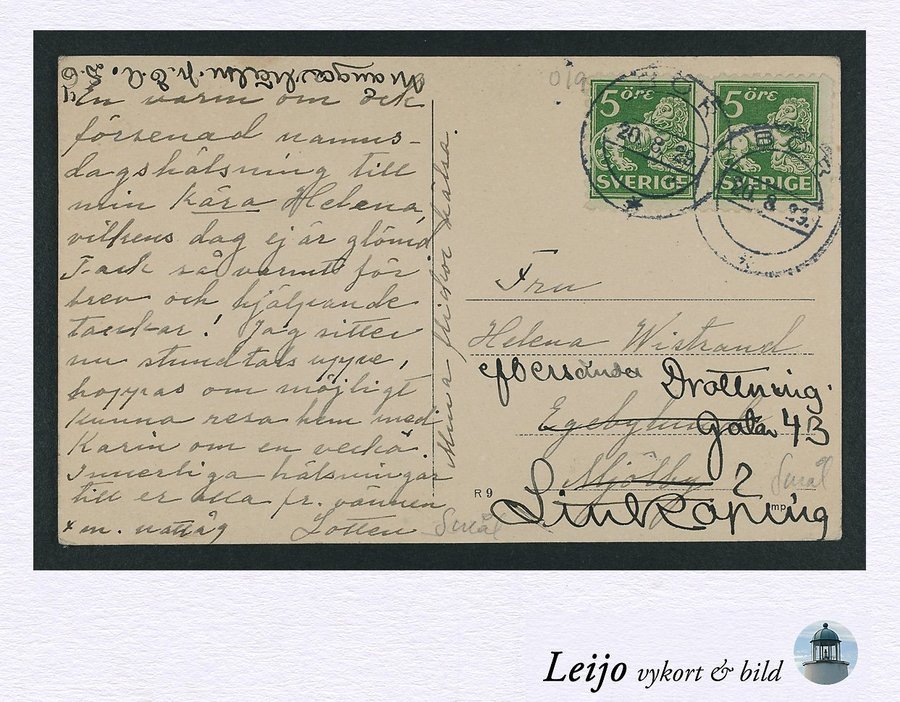 En varm om ock
försenad namns-
dagshälsning till
min Kära Helena,
vilkens dag ej är glömd
Tack så varmt för
brev och hjälpande
tankar! Jag sitter
nu stundtals uppe,
hoppas om möjligt
kunna resa hem med
Karin om en vecka.
Innerliga hälsningar
till er alla fr. vännen
Lotten
Mina flickor hälsa.
5 öre
SVERIGE
5 öre
SVERIGE
20. 8. 23.
20. 8. 23.
Fru
Helena Wistrand
eftersändes Drottning
Gatan 4B
Egebylund
Mjölby 2
Linköping
R 9
Smål
Smål
Leijo vykort & bild